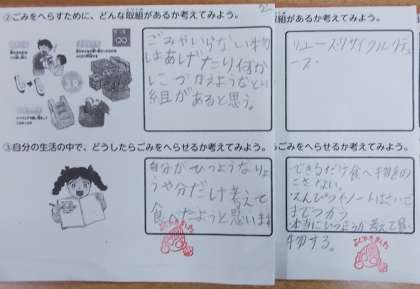 ②ごみをへらすために、どんな取組があるか考えてみよう。
ごみやいらない物
はあげたり何か
につかえようなとい
組があると思う。
③自分の生活の中で、どうしたらごみをへらせるか考えてみよう。
自分がひつようなりょ
うや分だけ考えて
食べたようと思います
取組があるか考えてみよう。
リユースリサイクルリデュ
ース.
らごみをへらせるか考えてみよう。
できるだけ食べ物をの
こさない。
えんぴつやノートはさいご
までつかう
本当にひつようか考えて買い
物する。